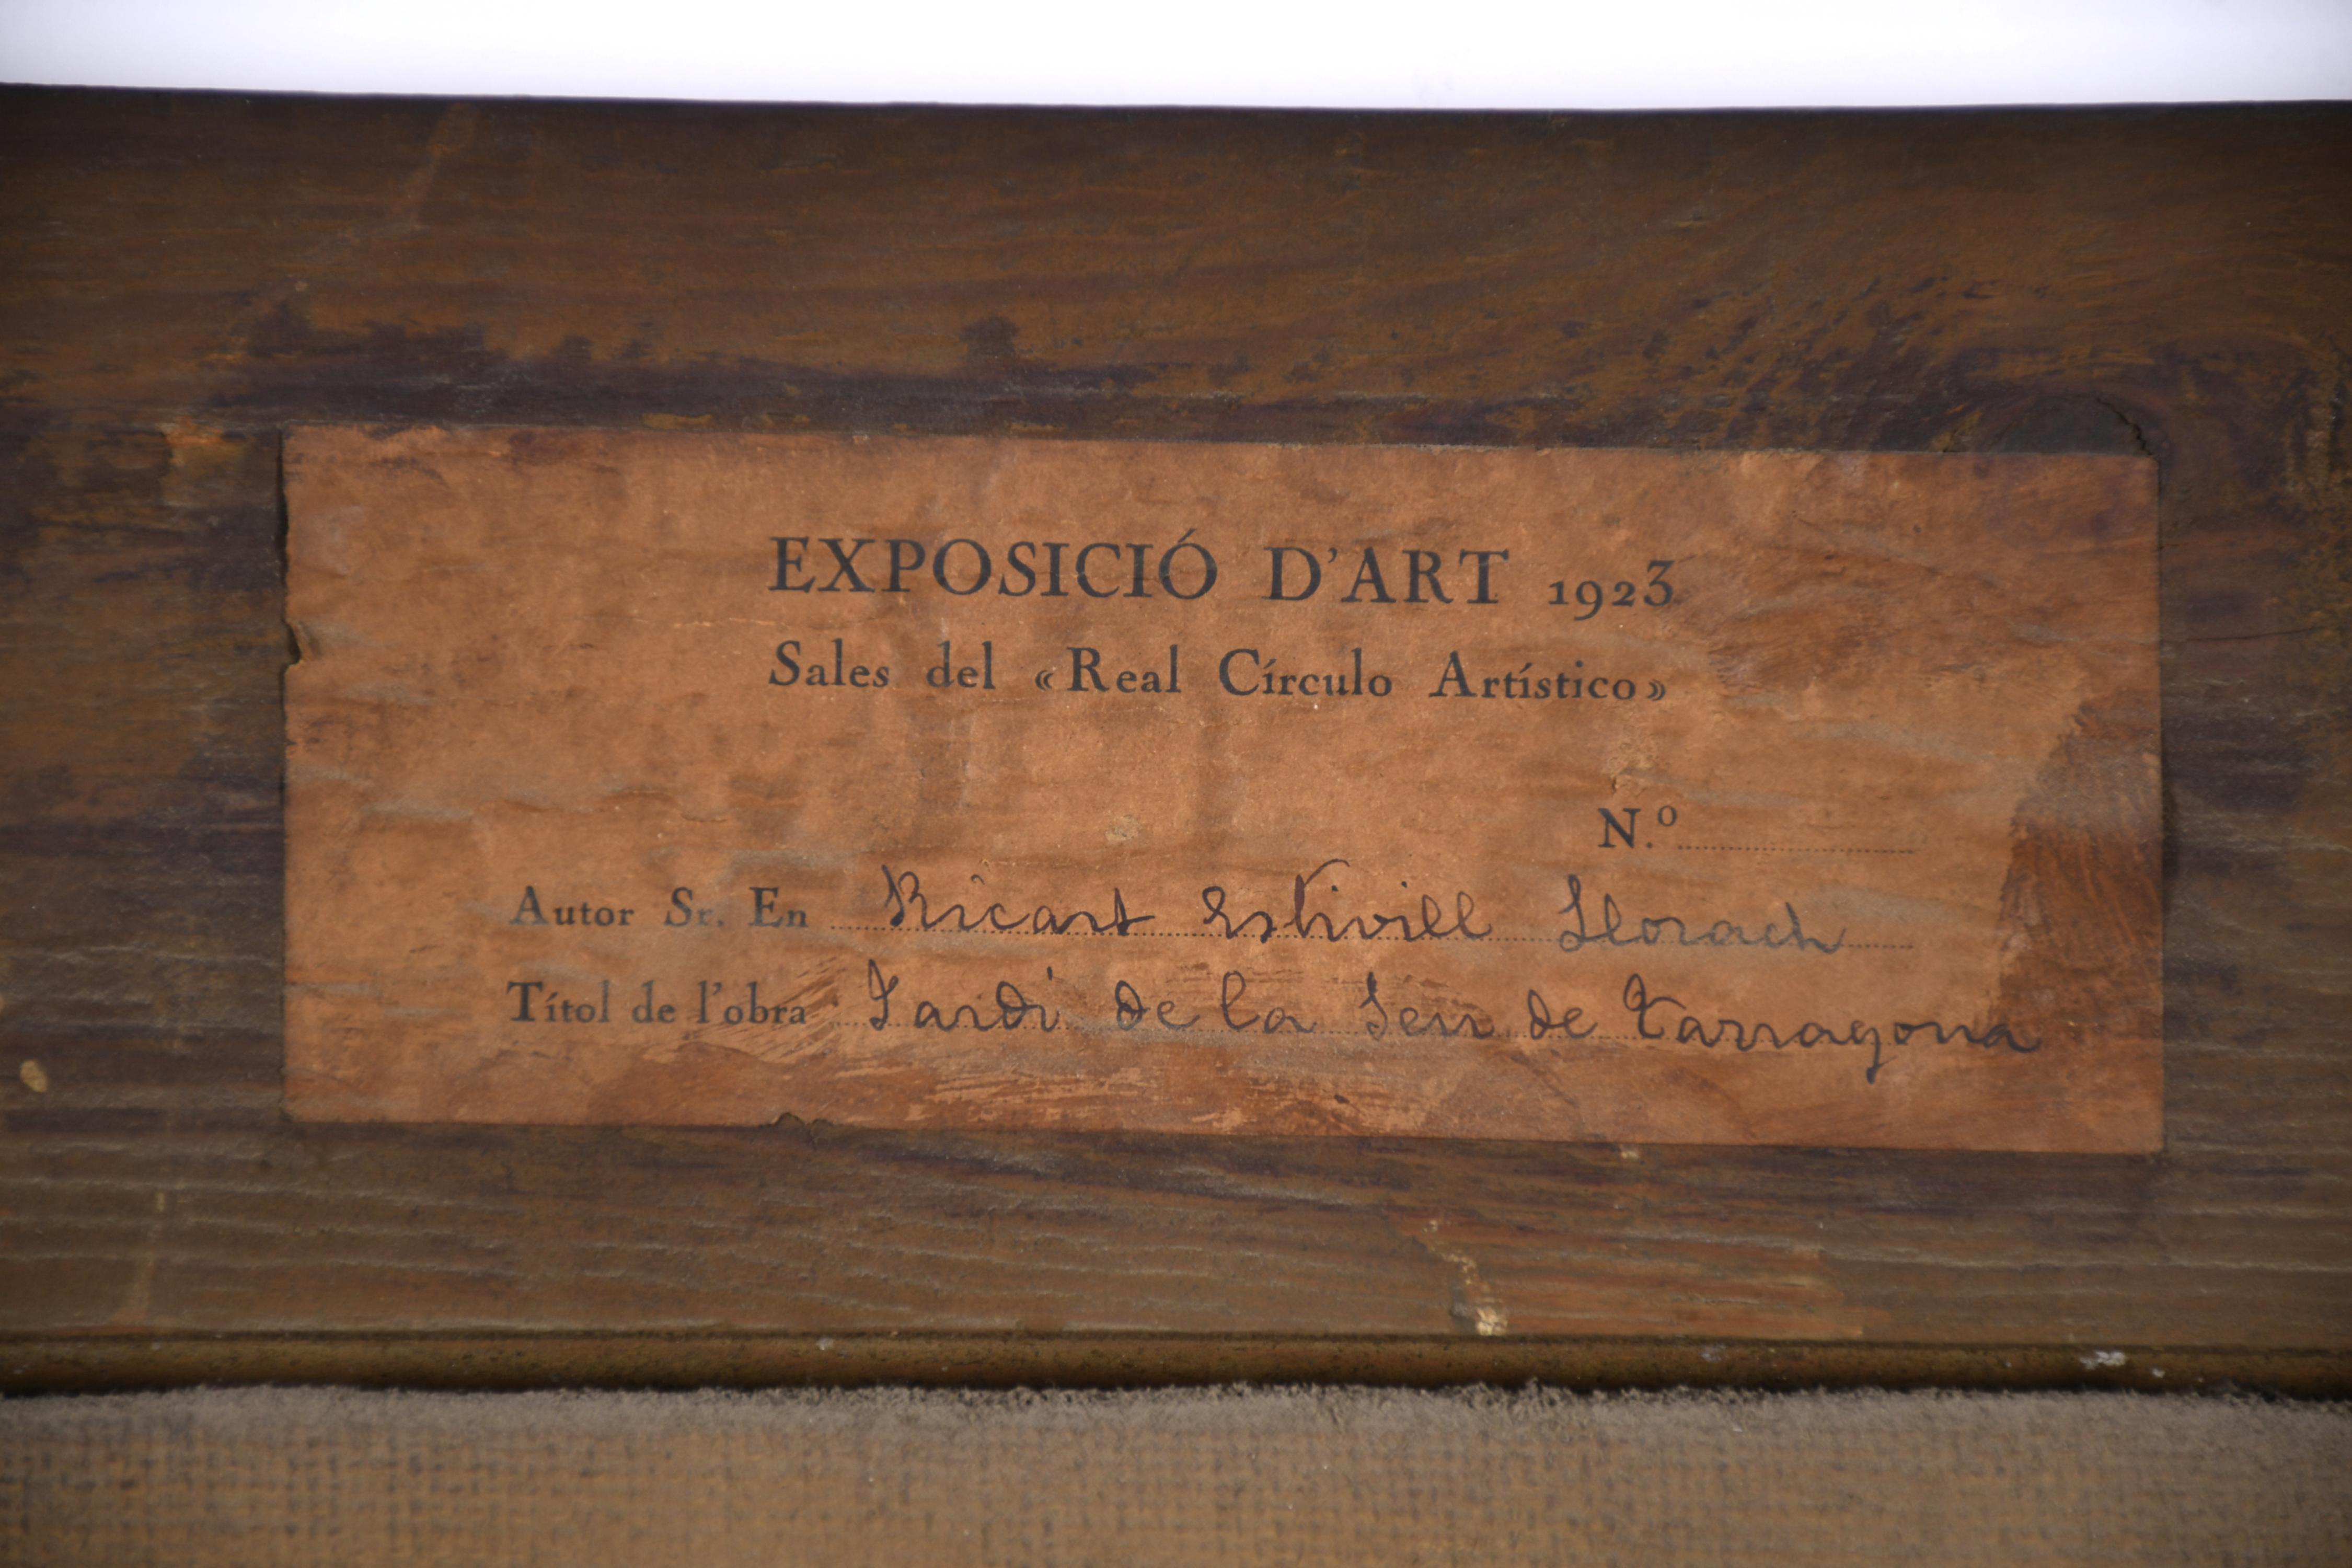 EXPOSICIÓ D'ART 1923
Sales del «Real Círculo Artístico»
N.º
Autor Sr. En Ricart Estivill Llorach
Títol de l'obra Jardi de la Seu de Tarragona